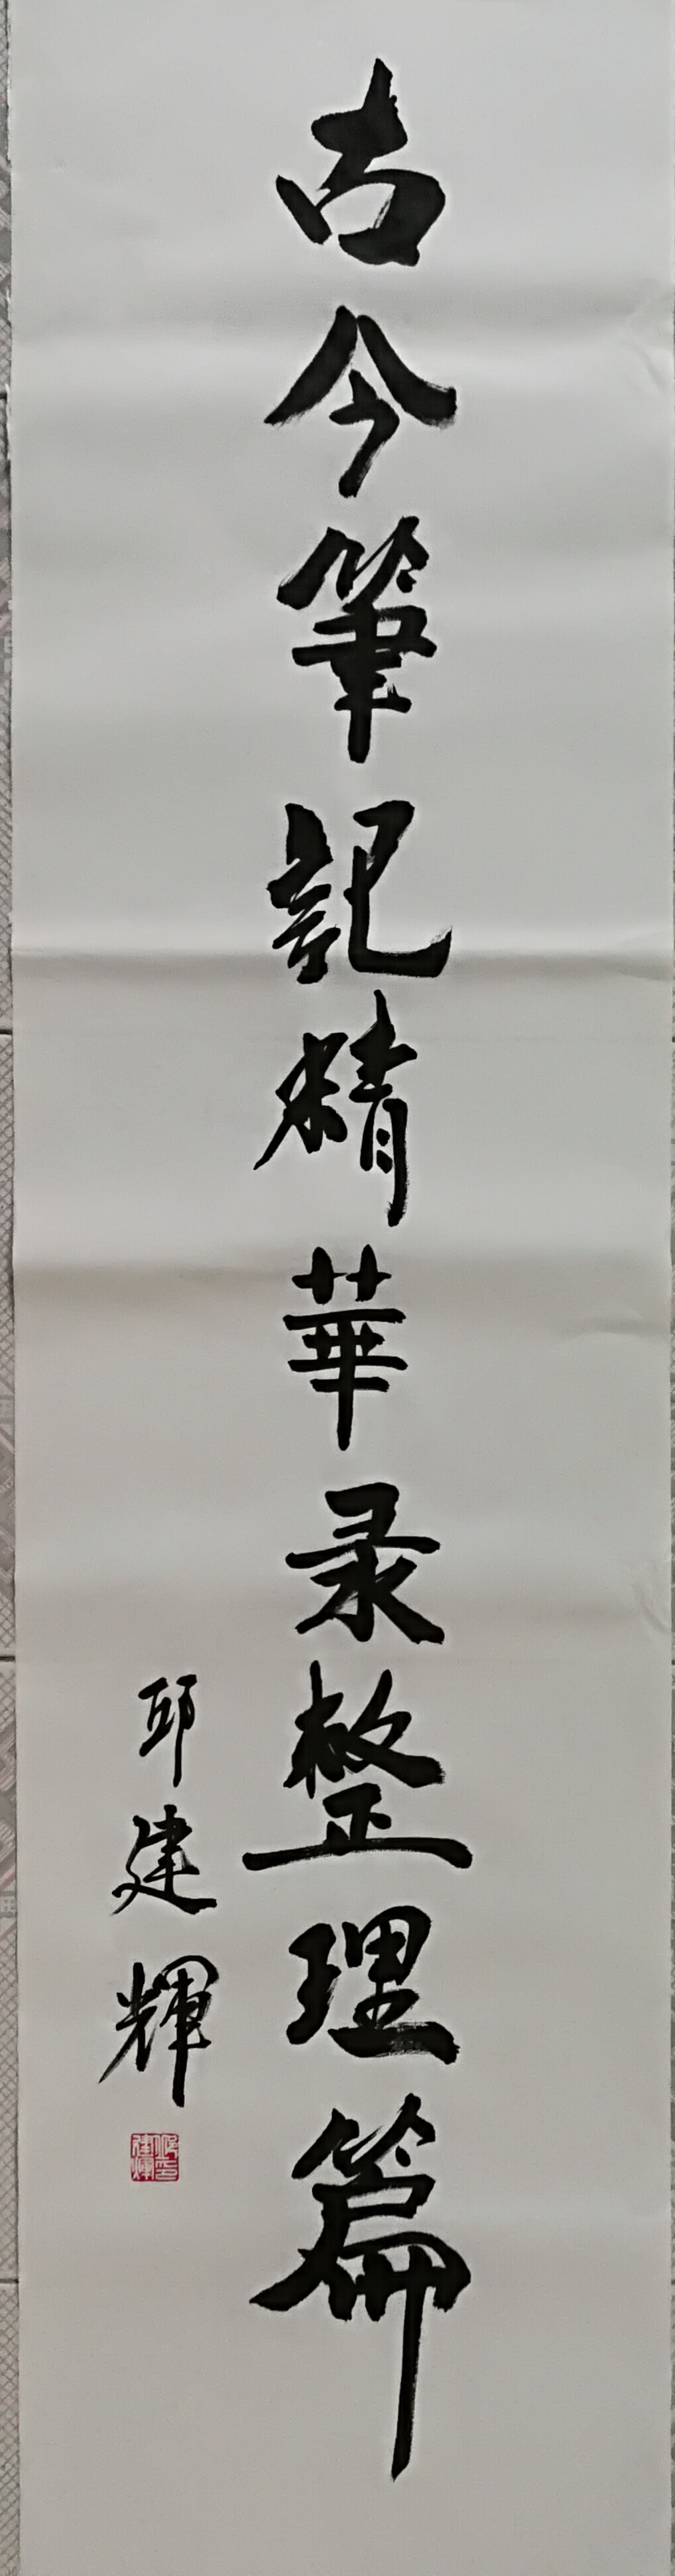 古今筆記精華录整理篇
邱建輝